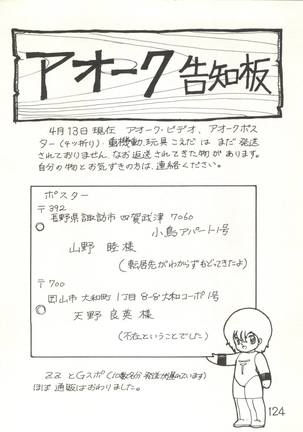 アオーク 告知板
4月13日現在 アオーク・ビデオ、アオークポス
ター(4ッ折り)・重機動玩具こえだ は まだ発送
されておりません。なお返送されてきた物があります。
自分の物とお気ずきの方は、連絡ください。
ポスター
〒392
長野県諏訪市四賀政津 7060
小島アパート1号
山野 睦様
(転居先がわからずもどってきたよ)
〒700
岡山市 大和町 1丁目8-8大和コーポ1号
天野 良英様
(不在ということでした)
ZZとGスポ(10数名分 発送が遅れています)
ほぼ 通販はおわりました。
124